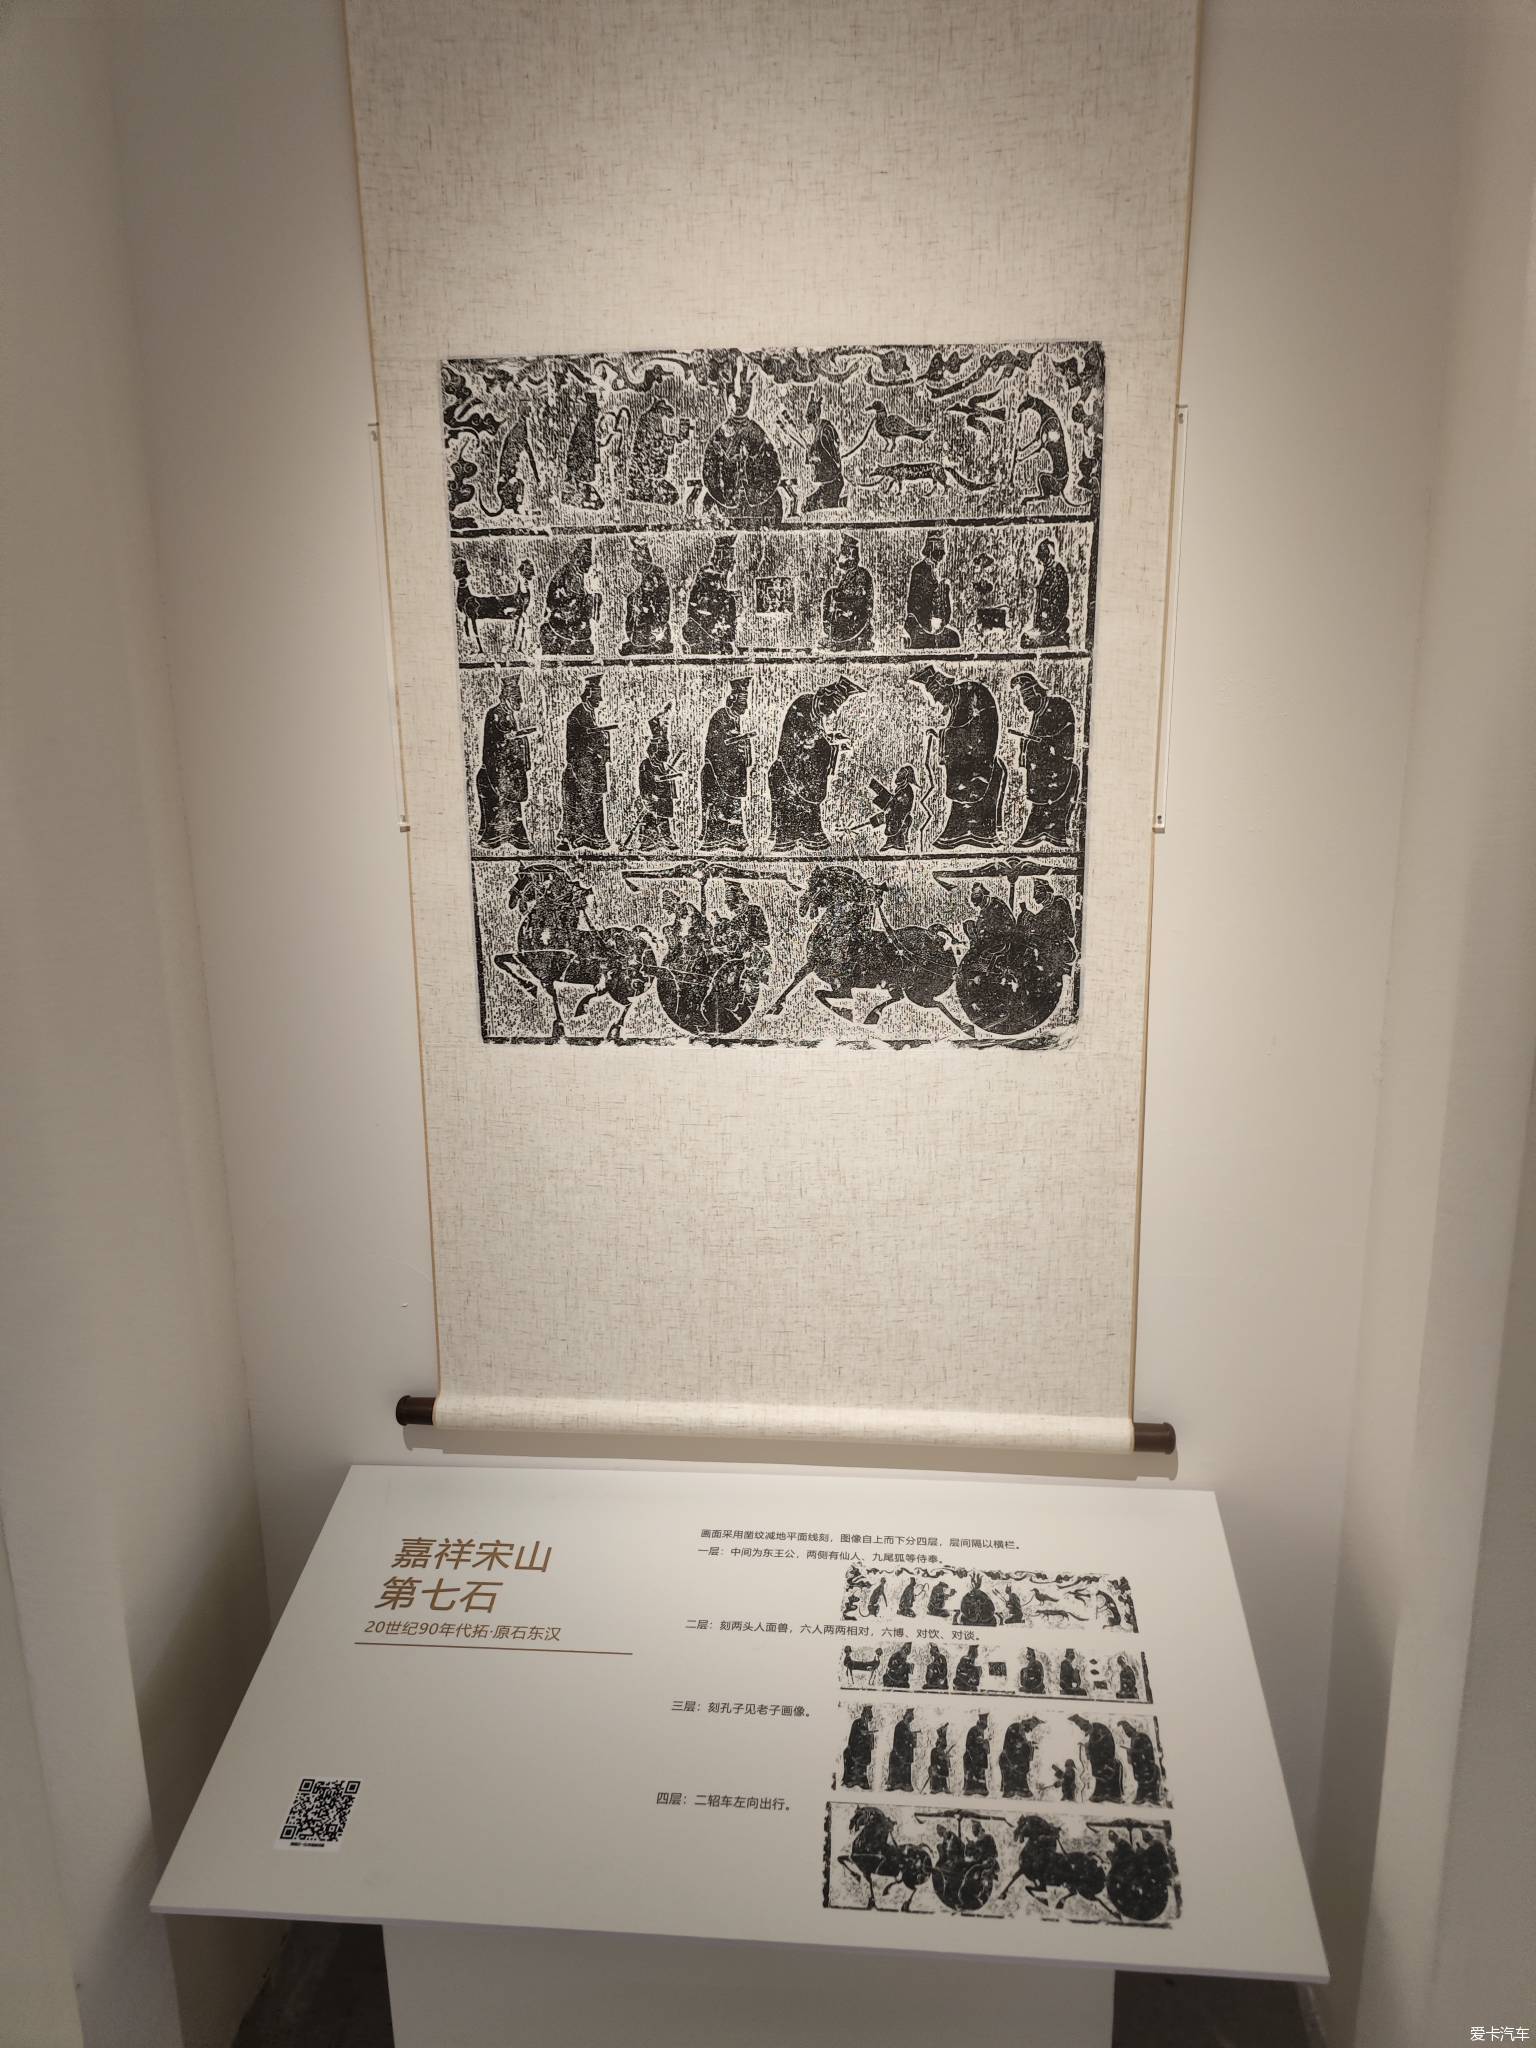 嘉祥宋山
第七石
20世纪90年代拓·原石东汉
画面采用凿纹减地平面线刻，图像自上而下分四层，层间隔以横栏。
一层：中间为东王公，两侧有仙人、九尾狐等侍奉。
二层：刻两头人面兽，六人两两相对，六博、对饮、对谈。
三层：刻孔子见老子画像。
四层：二轺车左向出行。
爱卡汽车